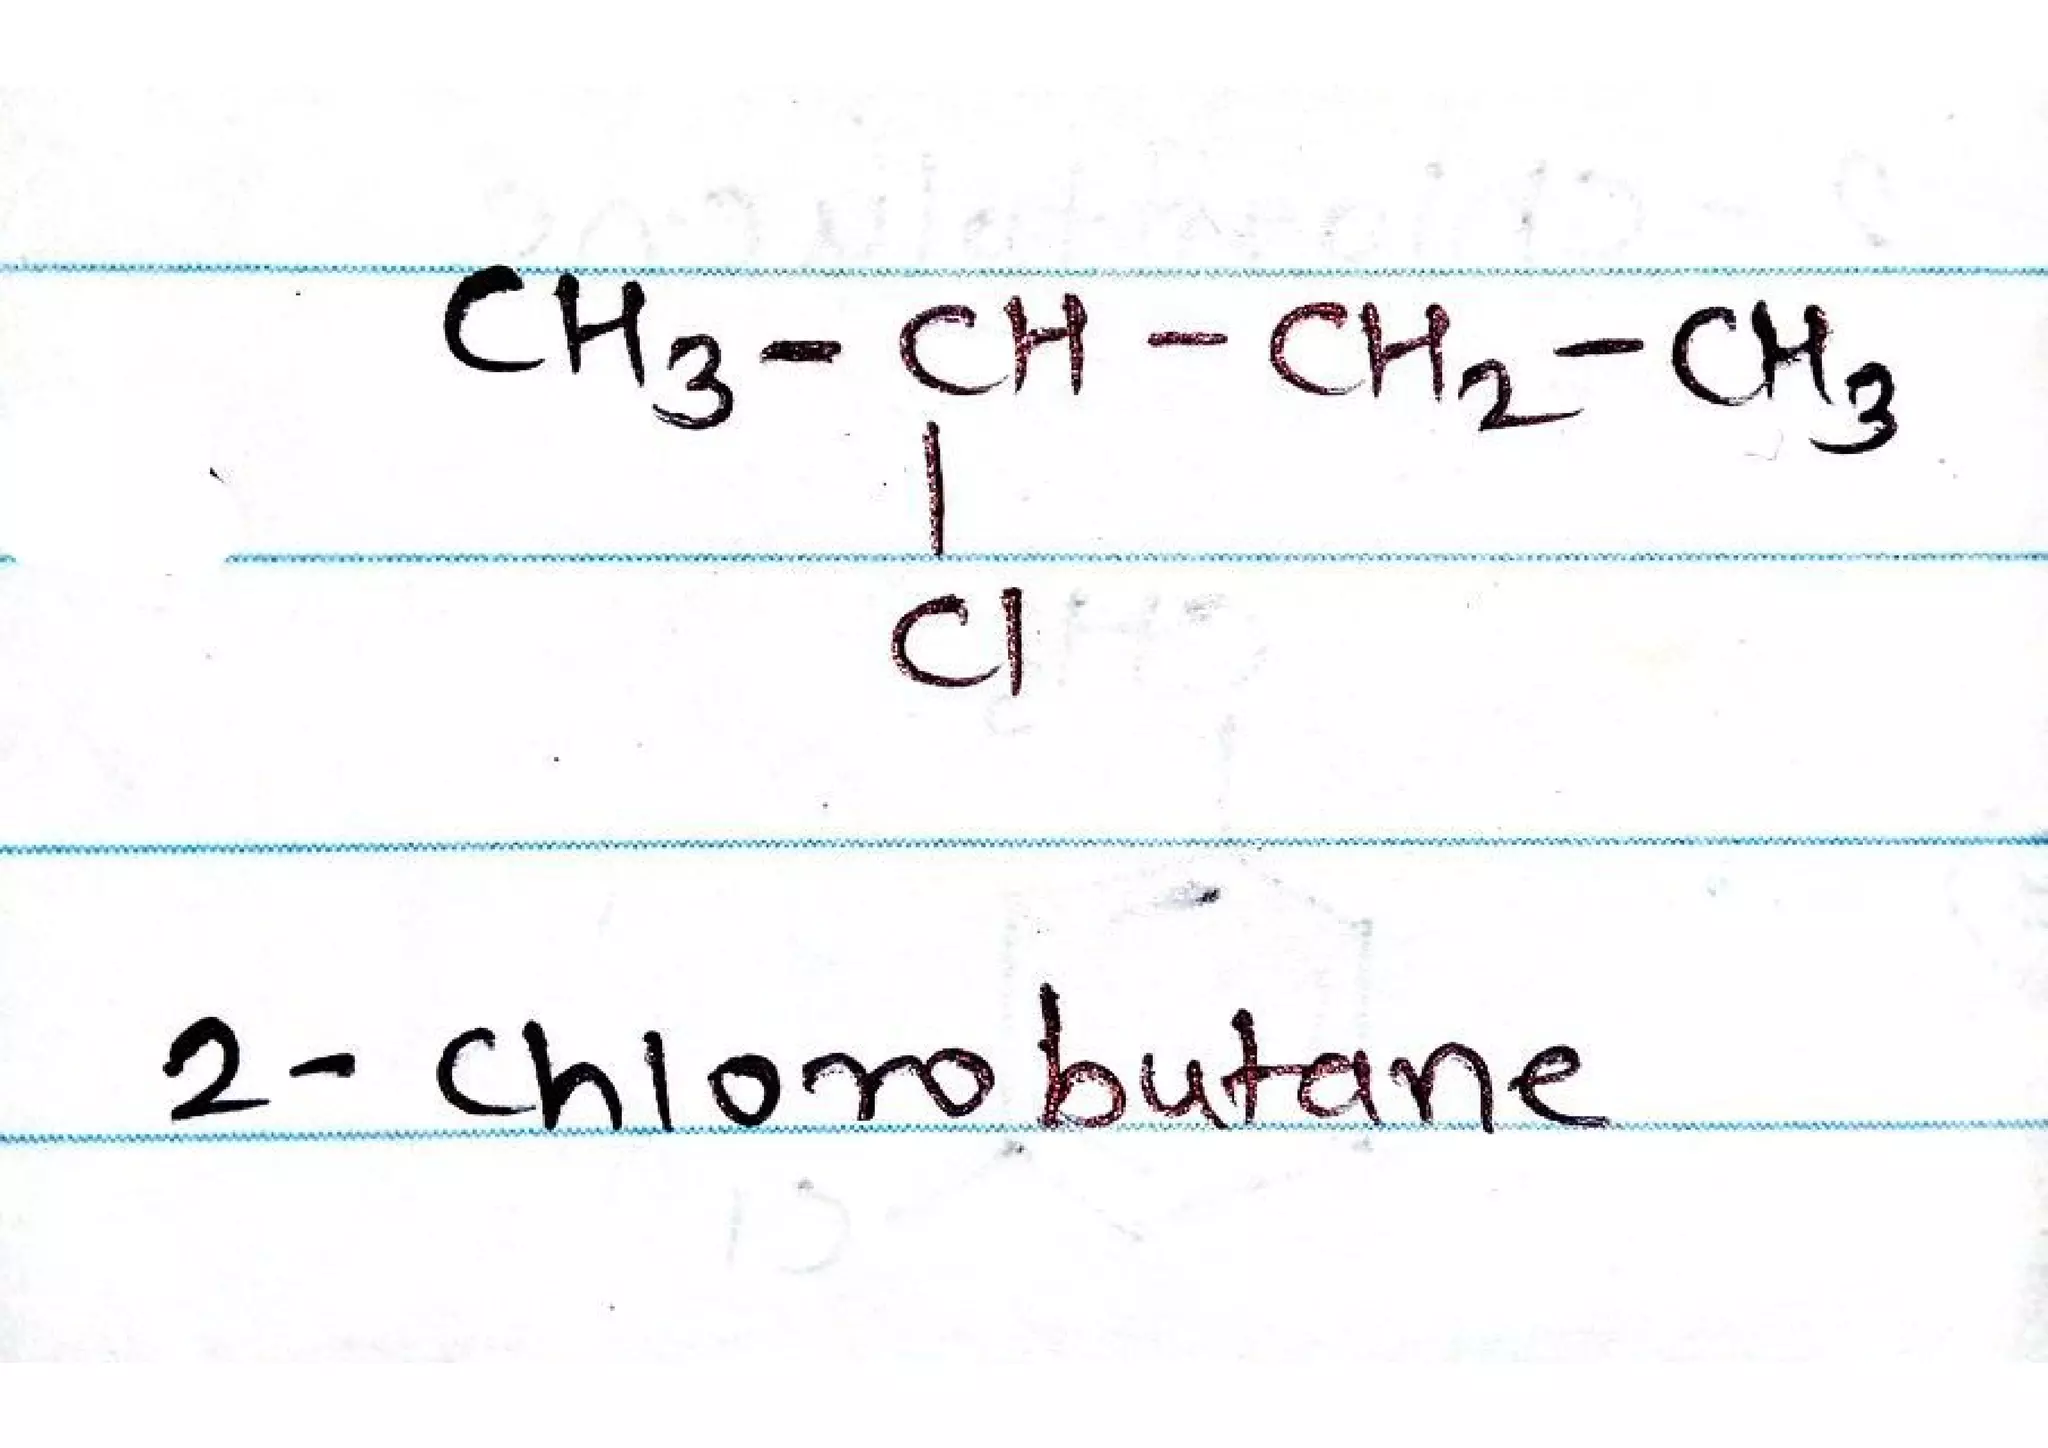 CH3 - CH - CH2 - CH3
|
Cl
2- Chlorobutane